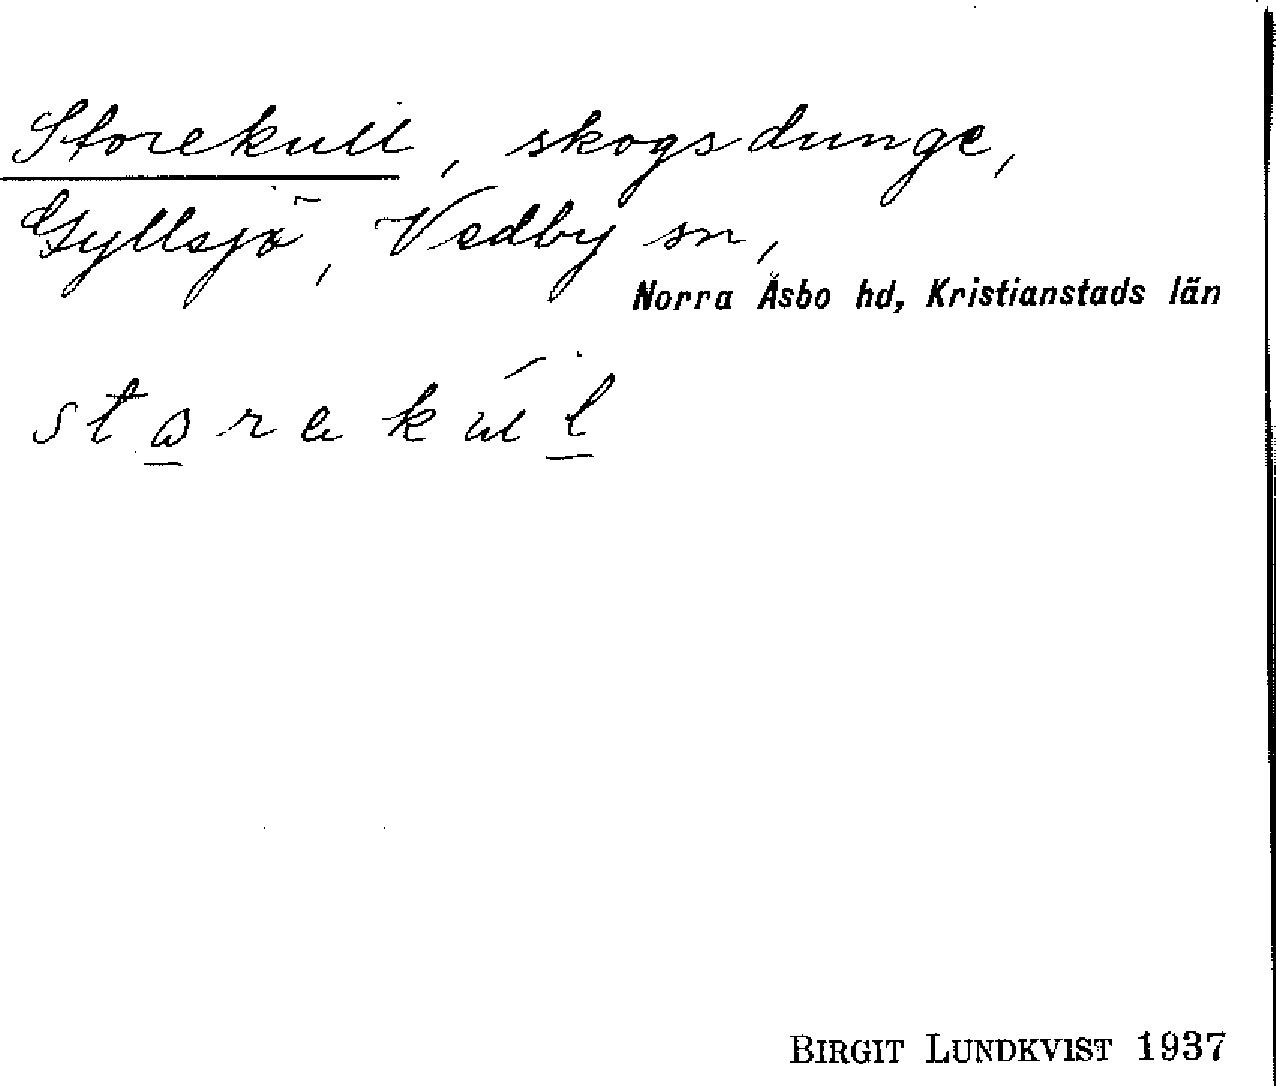 Storekull, skogsdunge,
Gyllsjö, Vedby sn,
Norra Åsbo hd, Kristianstads län
BIRGIT LUNDKVIST 1937